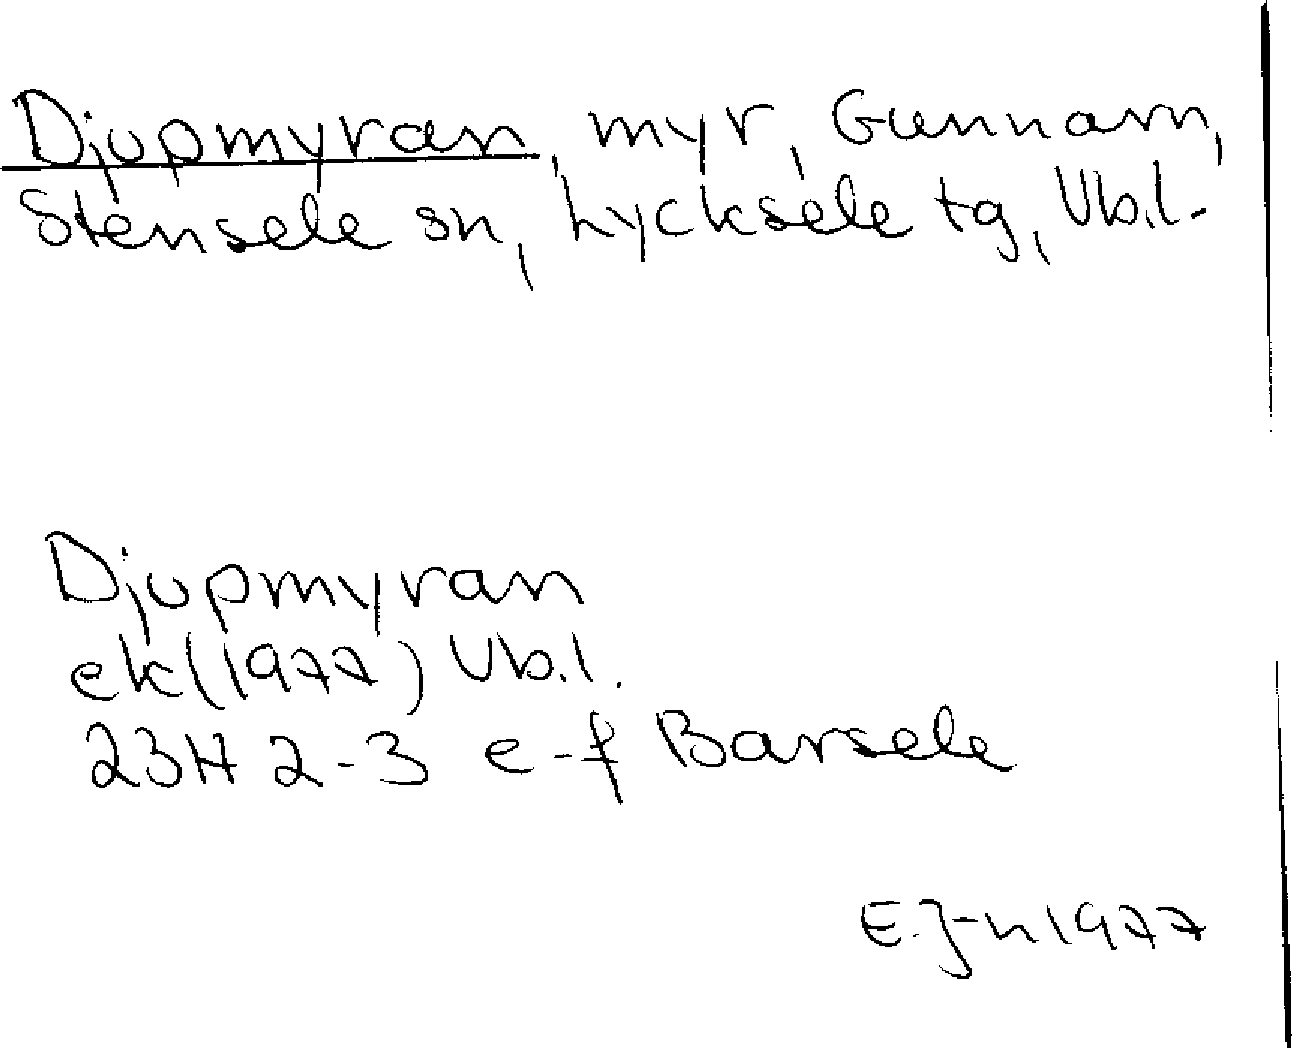 Djupmyran, myr, Gunnarn,
Stensele sn, Lycksele tg, Vb.l.
Djupmyran
ek (1977) Vb.l.
23H 2-3 e-f Barsele
E.J-n 1977